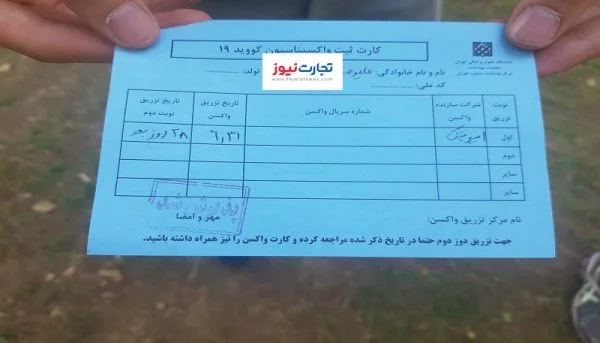 کارت ثبت واکسیناسیون کووید ۱۹
دانشگاه علوم پزشکی تهران
معاونت بهداشت
مرکز بهداشت جنوب تهران
نام و نام خانوادگی:
تولد:
کد ملی:
تجارت‌نیوز
www.tejaratnews.com
نوبت تزریق
شرکت سازنده واکسن
شماره سریال واکسن
تاریخ تزریق واکسن
تاریخ تزریق نوبت دوم
اول
۶,۳۱
۲۸ روز بعد
دوم
سایر
سایر
نام مرکز تزریق واکسن:
مهر و امضا
جهت تزریق دوز دوم حتما در تاریخ ذکر شده مراجعه کرده و کارت واکسن را نیز همراه داشته باشید.